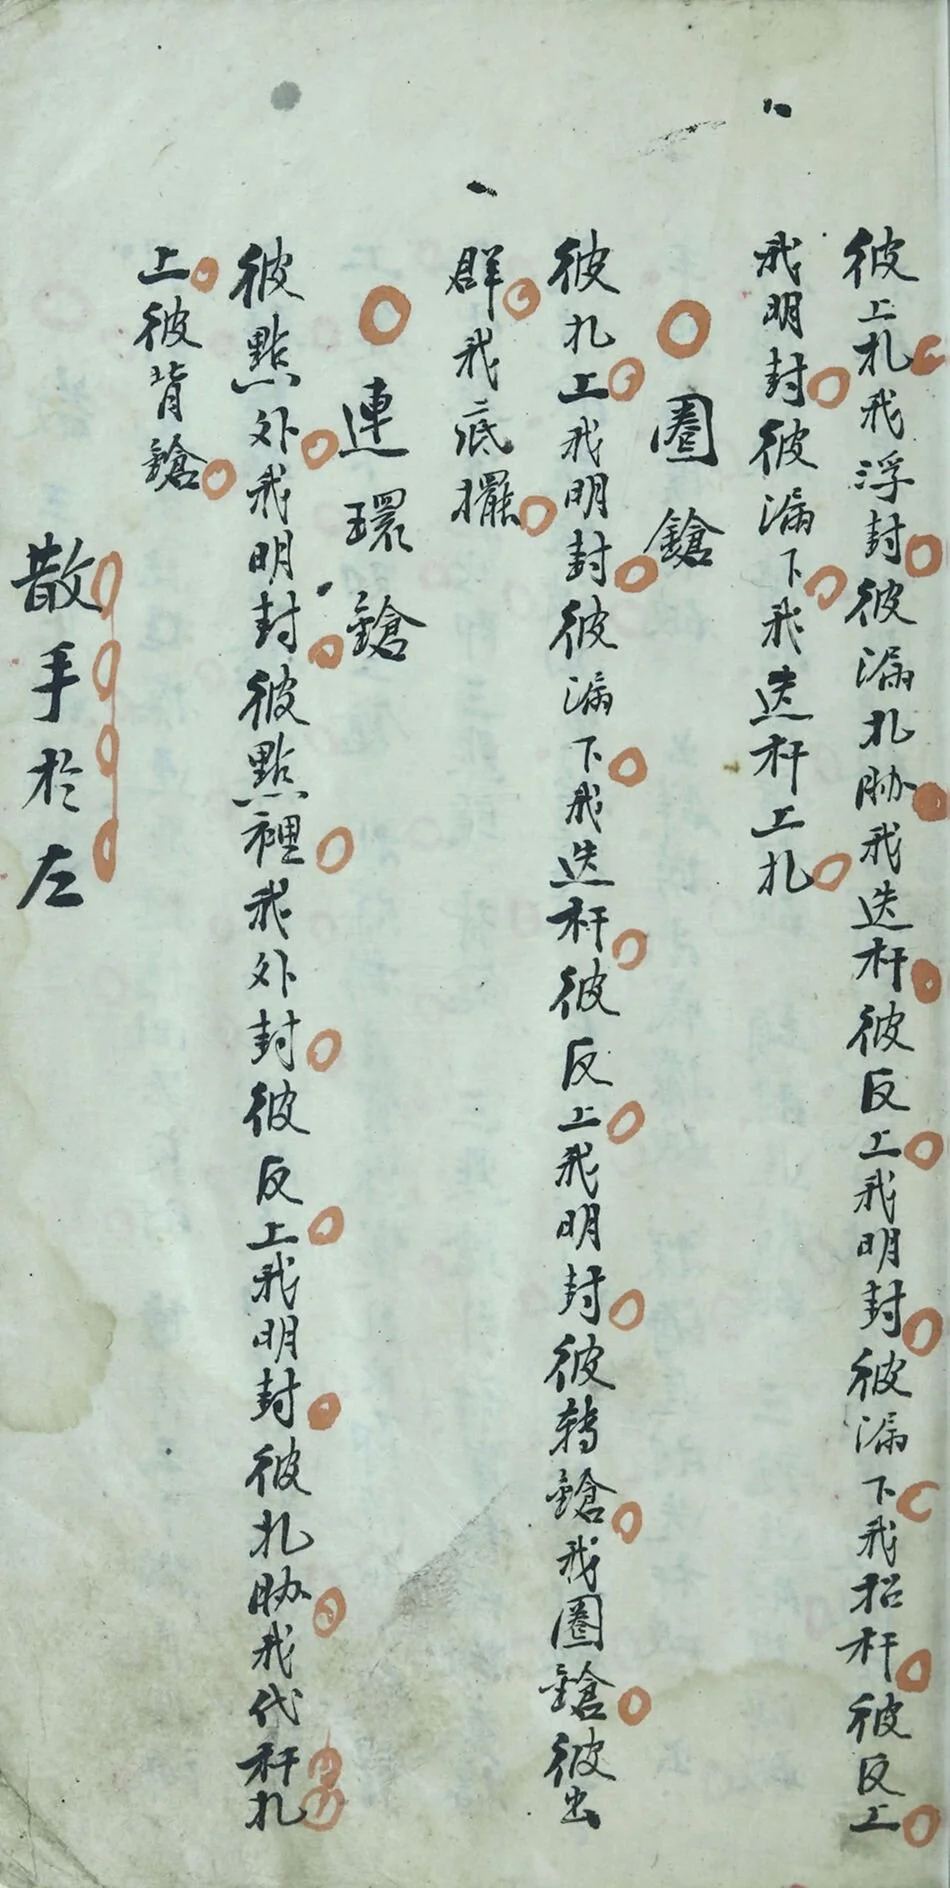 彼上扎我浮封彼漏扎胁我迭杆彼反上我明封彼漏下我招杆彼反上
我明封彼漏下我迭杆上扎
圈鎗
彼扎上我明封彼漏下我迭杆彼反上我明封彼轉鎗我圈鎗彼出
群我底擺
連環鎗
彼點外我明封彼點裡我外封彼反上我明封彼扎胁我代杆扎
上彼背鎗
散手於左